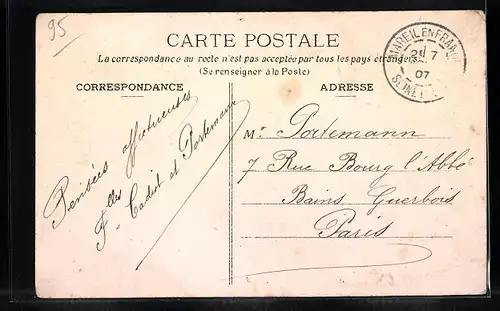 95
CARTE POSTALE
La correspondance au recto n'est pas acceptée par tous les pays étrangers.
(Se renseigner à la Poste)
CORRESPONDANCE
ADRESSE
MAREIL EN FRANCE
25 7
07
SEINE
Pensées affectueuses
Flles Cadiet et Portemann
Mr. Portemann
7 Rue Bourg l'Abbé
Bains Guerbois
Paris